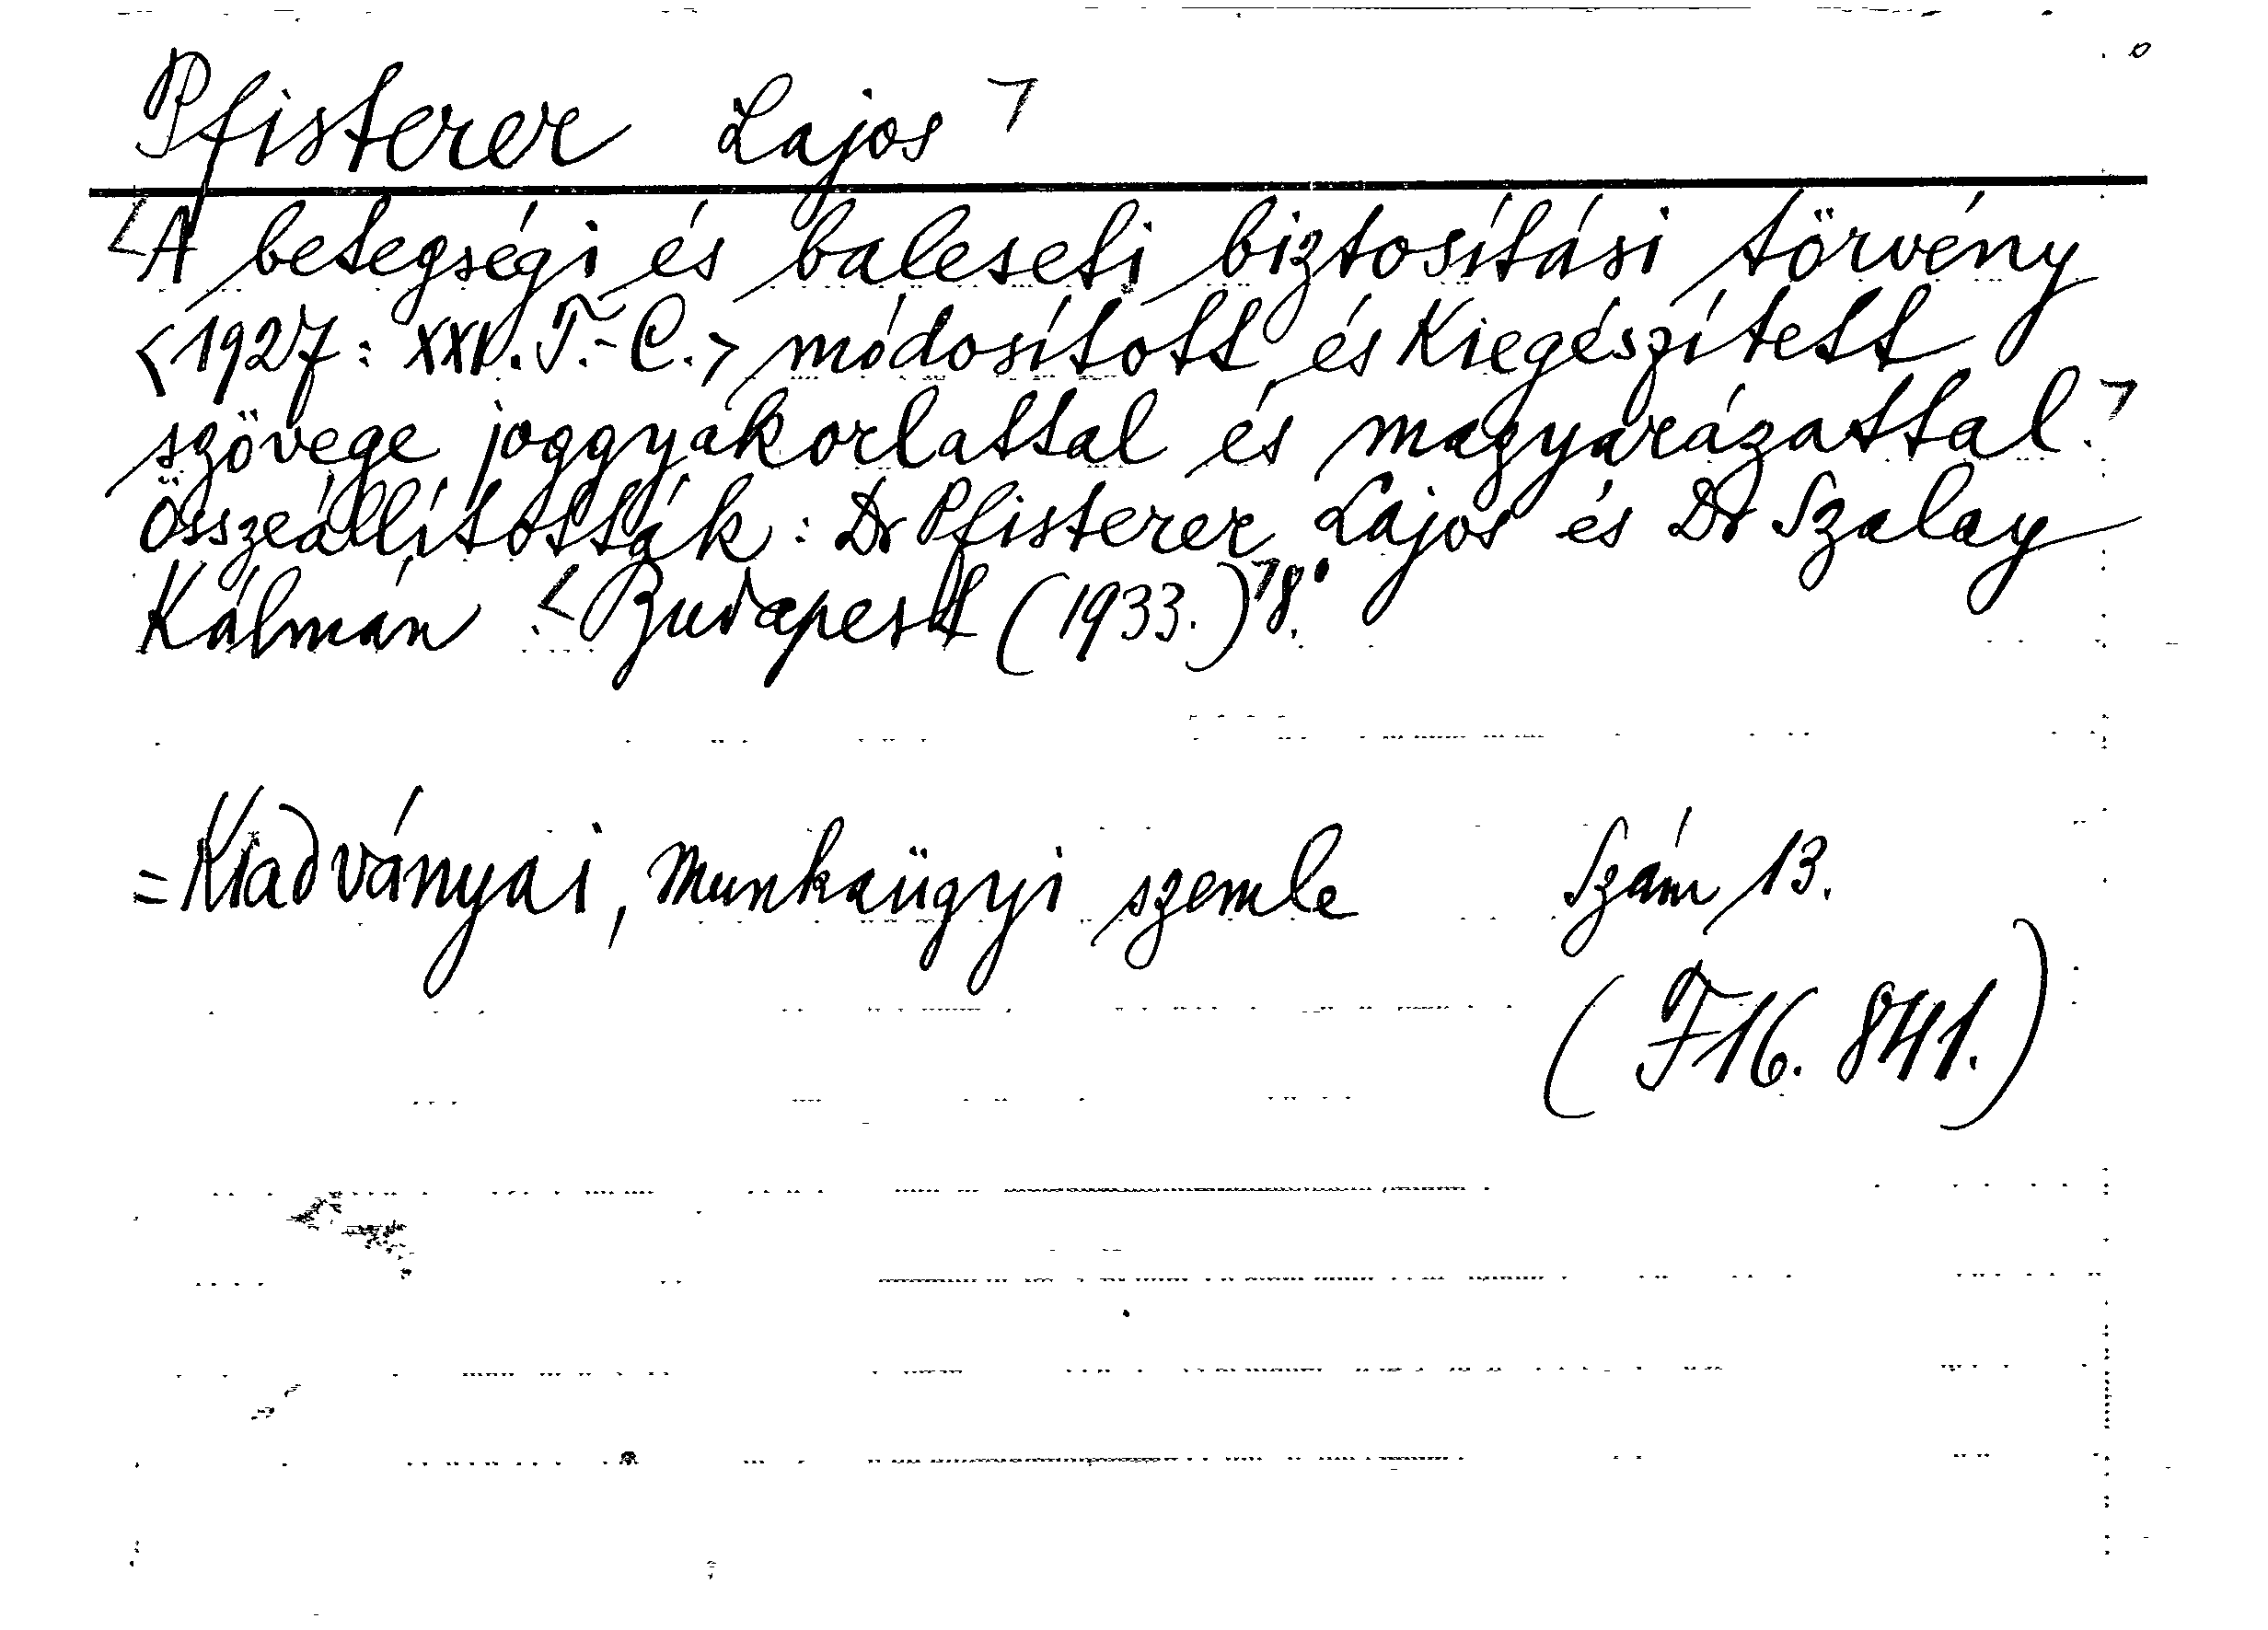 Pfisterer Lajos
A betegségi és baleseti biztosítási törvény
<1927: XXI. T.-C.> módosított és kiegészített
szövege joggyakorlattal és magyarázattal.
Összeállították: Dr Pfisterer Lajos és Dr Szalay
Kálmán. Budapest (1933.) 8°
= Kiadványai, Munkaügyi szemle Szám 13.
(F16. 841.)